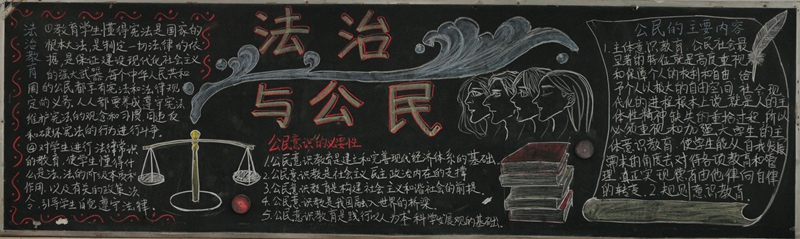 法治教育
①教育学生懂得宪法是国家的
根本大法,是制定一切法律的依
据,是保证建设现代化社会主义
的强大武器,每个中华人民共和
国的公民都享有宪法和法律规
定的义务,人人都要养成遵守宪法
维护宪法的观念和习惯,同违反
和破坏宪法的行为进行斗争。
②对学生进行法律常识
的教育,使学生懂得什
么是法,法的所以本质和
作用,以及有关的政策法
令,引导学生自觉遵守法律。
法治
与公民
公民意识的必要性
1.公民意识教育是建立和完善现代经济体系的基础。
2.公民意识是社会主义民主政治内在的支撑
3.公民意识教育是构建社会主义和谐社会的前提。
4.公民意识教是我国融入世界的桥梁。
5.公民意识教育是践行以人为本科学发展观的基础。
公民的主要内容
1.主体意识教育 公民社会最
显著的特征就是高度重视
和保障个人的权利和自由,给
予个人以极大的自由空间,社会现
代化的进程根本上说就是人的主
体性精神缺失的
必须重视和加强大学生的主
体意识教育,使学生能从自我发展
需求的角度去对待各项教育和管
理,真正实现像有由他律向自律
的转变。2.规则意识教育。